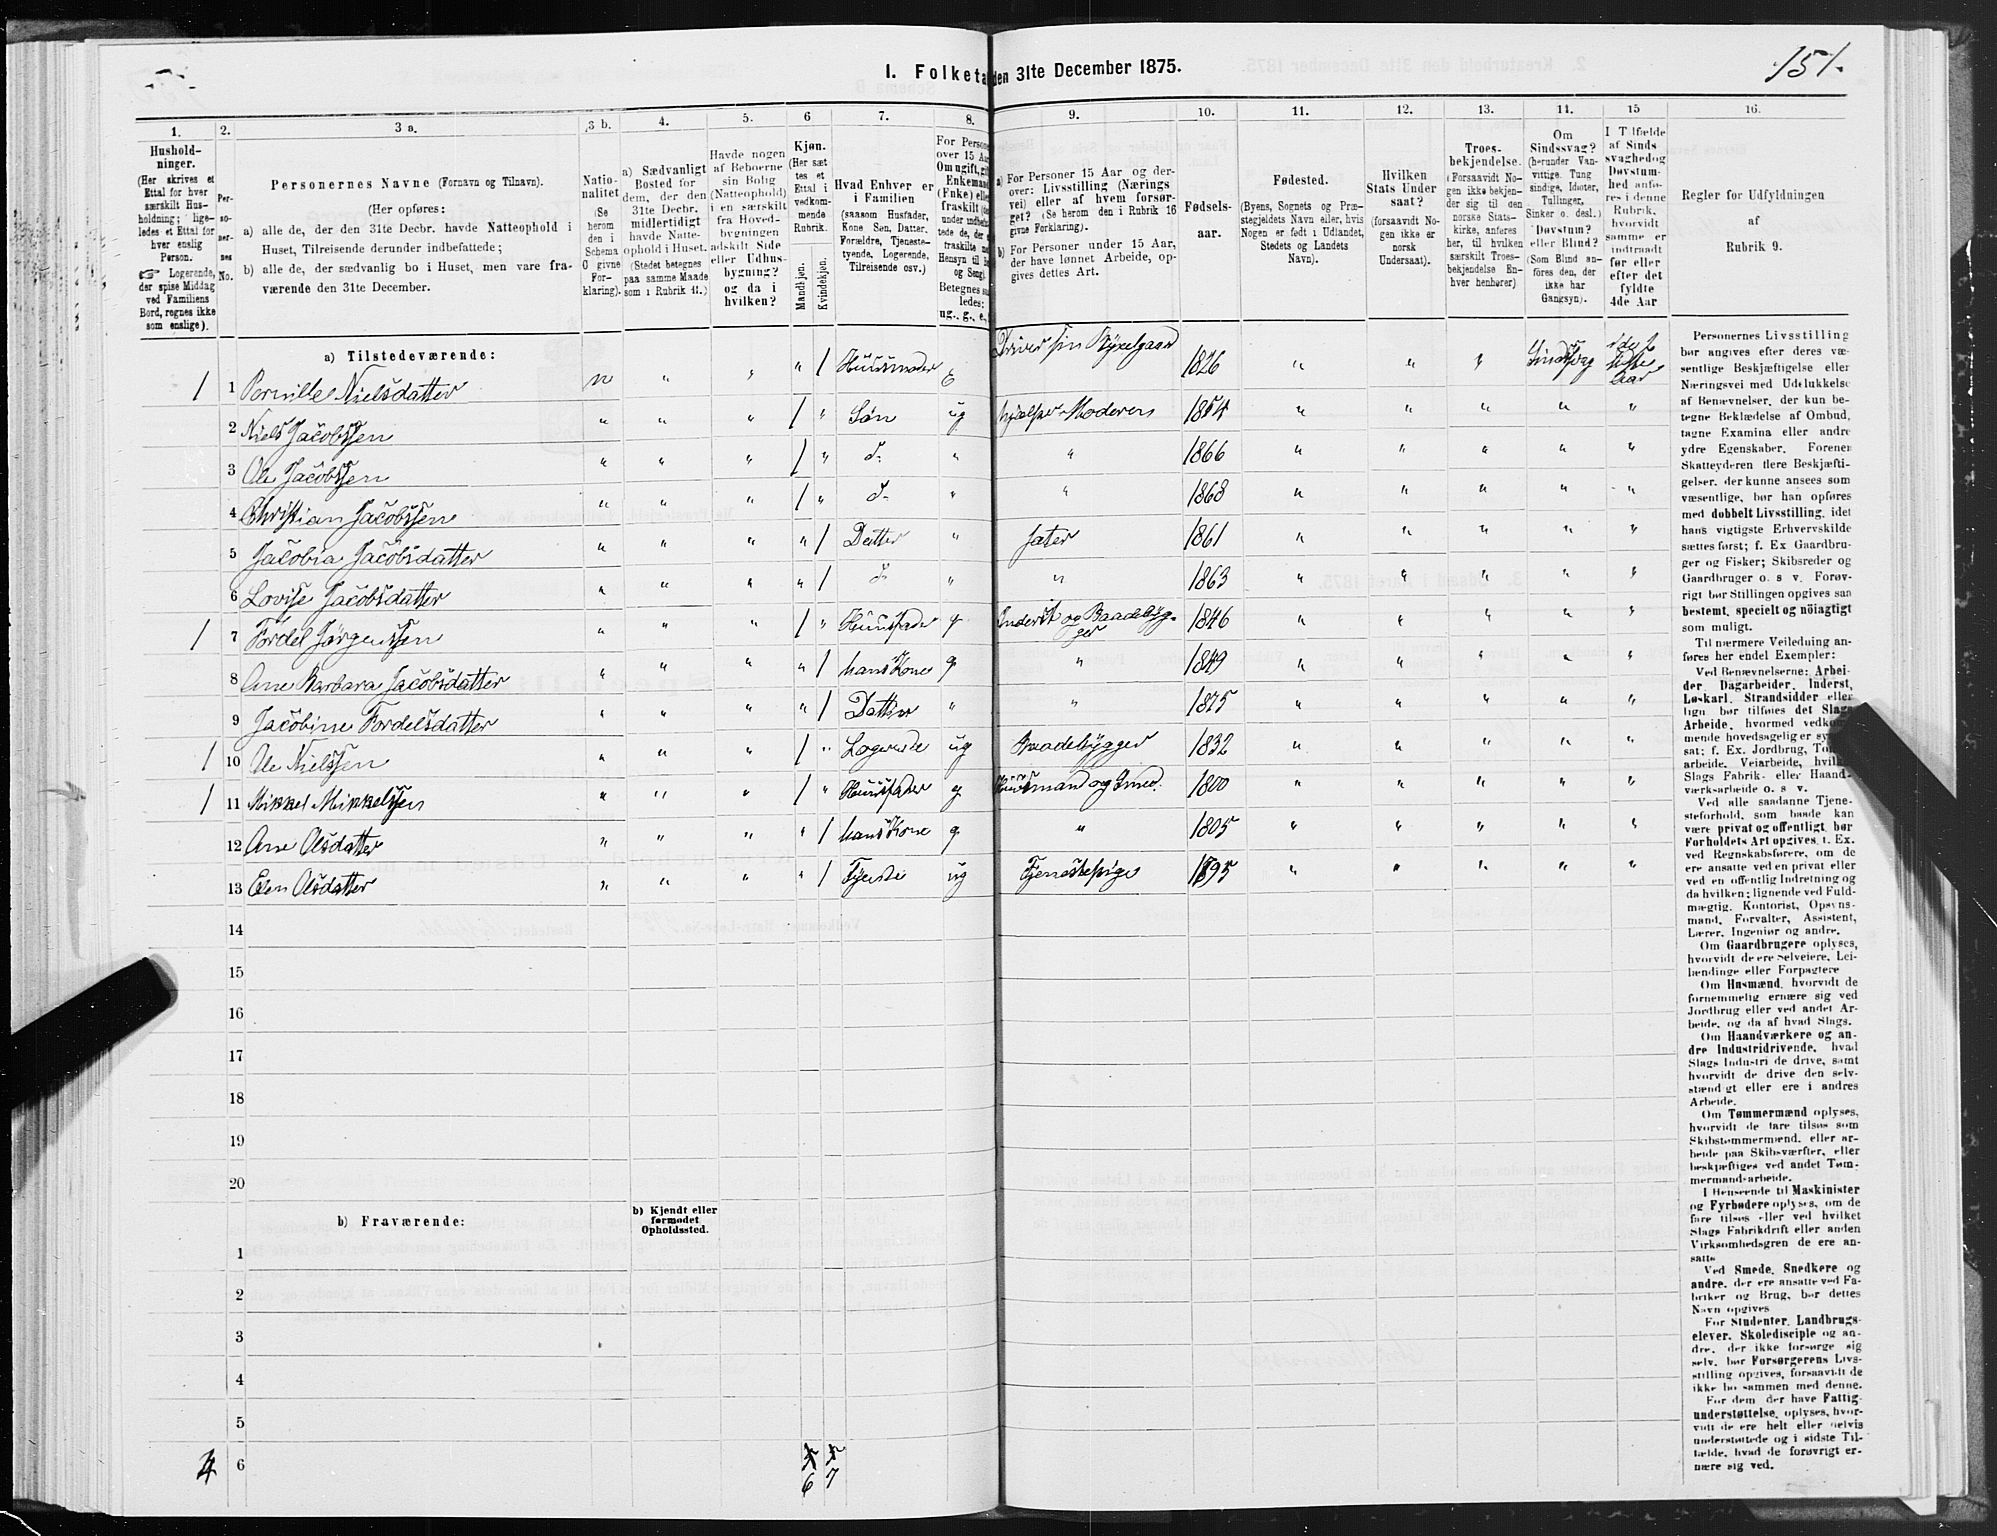 I. Folketæ den 31te December 1875.
151.
1. 2. 3 a. 3 b. 4. 5. 6 7. 8. 9. 10. 11. 12. 13. 14. 15 16.
Hushold-
ninger.
(Her skrives et
Ettal for hver
særskilt Hus-
holdning; lige-
ledes et Ettal for
hver enslig
Person.
☞ Logerende,
der spise Middag
ved Familiens
Bord, regnes ikke
som enslige).
Per-
so-
ner-
nes
No.
Personernes Navne (Fornavn og Tilnavn).
(Her opføres:
a) alle de, der den 31te Decbr. havde Natteophold i
Huset, Tilreisende derunder indbefattede;
b) alle de, der sædvanlig bo i Huset, men vare fra-
værende den 31te December.
Natio-
nalitet
(Se
herom
den i
Schema
O givne
For-
klaring).
a) Sædvanligt
Bosted for
dem, der den
31te Decbr.
midlertidigt
havde Natte-
ophold i Huset.
(Stedet betegnes
paa samme Maade
som i Rubrik 11.)
Havde nogen
af Beboerne
sin Bolig
(Natteophold)
i en særskilt
fra Hoved-
bygningen
adskilt Side
eller Udhus-
bygning?
og da i
hvilken?
Kjøn.
(Her sæt
tes et
Ettal i
vedkom-
mende
Rubrik.
Mandkjøn.
Kvindekjøn.
Hvad Enhver er
i Familien
(saasom Husfader,
Kone Søn, Datter.
Forældre, Tjeneste-
tyende, Logerende,
Tilreisende osv.)
For Persone
over 15 Aa
Om ugift, gif
Enkemand
(Enke) elle
fraskilt
Betegnes saa
ledes:
ug., g., e.,
a) For Personer 15 Aar og der-
over: Livsstilling (Nærings
vei) eller af hvem forsør-
get? (Se herom den i Rubrik 16
givne Forklaring).
b) For Personer under 15 Aar,
der have lønnet Arbeide, op-
gives dettes Art.
Fødsels-
aar.
Fødested.
(Byens, Sognets og Præ-
stegjeldets Navn eller, hvis
Nogen er født i Udlandet,
Stedets og Landets
Navn).
Hvilken
Stats Under
saat?
(forsaavidt No-
gen ikke er
norsk
Undersaat).
Troes-
bekjendelse.
(Forsaavidt No-
gen ikke bekjen-
der sig til den
norske Stats-
kirke, anføres
her, til hvilken
særskilt Troes-
bekjendelse En-
hver henhører)
Om
Sindssvag?
(herunder Van-
vittige. Tung
sindige, Idioter,
Tullinger,
Sinker o. desl.)
Døvstum?
eller Blind?
(Som Blind an-
føres den, der
ikke har
Gangsyn).
I Tilfælde
af Sinds
svaghed og
Døvstum-
hed anfø-
res i denne
Rubrik,
hvorvidt
samme er
indtraadt
før eller
efter det
fyldte
4de Aar
Regler for Udfyldningen
af
Rubrik 9.
a) Tilstedeværende:
1 1 Pernille Nielsdatter n " " " 1 Huusmoder e Driver sin Byxelgaard 1826 " " " Sindssvag i det 1ste Aar
2 Niels Jacobssen " " " 1 " Søn ug hjælper Moderen 1854 " " " " "
3 Ole Jacobssen " " " 1 " d. " " 1866 " " " " "
4 Christian Jacobssen " " " 1 " d. " " 1868 " " " " "
5 Jacobia Jacobsdatter " " " " 1 Datter " jæter 1861 " " " " "
6 Lovise Jacobsdatter " " " " 1 d. " " 1863 " " " " "
1 7 Tordel Jørgenssen " " " 1 " Huusfader g Inderst og Baadebyg-
ger 1846 " " " " "
8 Ane Barbara Jacobsdatter " " " " 1 hans Kone g " 1849 " " " " "
9 Jacobine Tordelsdatter " " " " 1 Datter " " 1875 " " " " "
1 10 Ole Nielssen " " " 1 " Logerende ug Baadebygger 1832 " " " " "
1 11 Mikkel Mikkelssen " " " 1 " Huusfader g Huusmand og Smed. 1800 " " " " "
12 Ane Olsdatter " " " " 1 hans Kone g " 1805 " " " " "
13 Elen Olsdatter " " " " 1 Tjende ug Tjenestepige 1895 " " " " "
14
15
16
17
18
19
20
b) Fraværende:
b) Kjendt eller
formodet
Opholdssted.
1
2
3
4
5
4 6
6 7
Personernes Livsstilling
bør angives efter deres væ-
sentlige Beskjæftigelse eller
Næringsvei med Udelukkelse
af Benævnelser, der kun be-
tegne Beklædelse af Ombud,
tagne Examina eller andre
ydre Egenskaber. Forener
Skatteyderen flere Beskjæfti-
gelser, der kunne ansees som
væsentlige, bør han opføres
med dobbelt Livsstilling, idet
hans vigtigste Erhvervskilde
sættes først; f. Ex Gaardbru-
ger og Fisker; Skibsreder og
Gaardbruger o. s v. Forøv-
rigt bør Stillingen opgives saa
bestemt, specielt og nöiagtigt
som muligt.
Til nærmere Veiledning an-
føres her endel Exempler:
Ved Benævnelserne: Arbei-
der Dagarbeider, Inderst,
Løskarl, Strandsidder eller
lign bør tilføies det Slags
Arbeide, hvormed vedkom-
mende hovedsagelig er syssel-
sat; f. Ex. Jordbrug, Tom
arbeide, Veiarbeide, hvilke
Slags Fabrik- eller Haand-
værksarbeide o. s v.
Ved alle saadanne Tjene-
steforhold, som baade kan
være privat og offentligt bør
Forholdets Art opgives, f. Ex.
ved Regnskabsførere, om de
ere ansatte ved en privat eller
ved en offentlig Indretning og
da hvilken; lignende ved Fuld-
mægtig, Kontorist, Opsyns-
mand, Forvalter, Assistent,
Lærer, Ingeniør og andre.
Om Gaardbrugere oplyses,
hvorvidt de ere Selveiere, Lei-
lændinge eller Forpagtere
Om Husmænd, hvorvidt de
fornemmelig ernære sig ved
Jordbrug eller ved andet Ar-
beide, og da af hvad Slags.
Om Haandværkere og an-
dre Industridrivende, hvad
Slags Industri de drive, samt
hvorvidt de drive den selv-
stændigt eller ere i andres
Arbeide.
Om Tømmermænd oplyses,
hvorvidt de fare tilsøs som
Skibstømmermænd, eller ar-
beide paa Skibsværfter, eller
beskjæftiges ved andet Tøm-
mermandsarbeide.
I Henseende til Maskinister
og Fyrbødere oplyses, om de
fare tilsøs eller ved hvilket
Slags Fabrikdrift eller anden
Virksomhedsgren de ere an-
satte
Ved Smede, Snedkere og
andre, der ere ansatte ved Fa-
briker og Brug, bør dettes
Navn opgives
For Studenter, Landbrugs-
elever, Skoledisciple og an-
dre, der ikke forsørge sig
selv, bør Forsørgerens Livs-
stilling opgives, forsaavidt de
ikke bo sammen med denne.
For dem, der have Fattig-
understøttelse, oplyses, hvor-
vidt de ere helt eller delvis
understøttede og i sidste Til-
fælde, hvad de forøvrigt er-
nære sig ved.